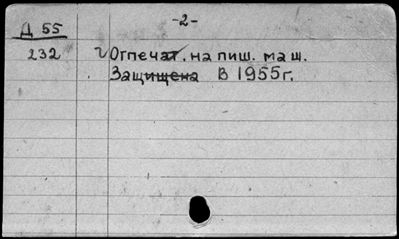 -2-
Д 55
232
Отпечат. на пиш. маш.
Защищена в 1955г.